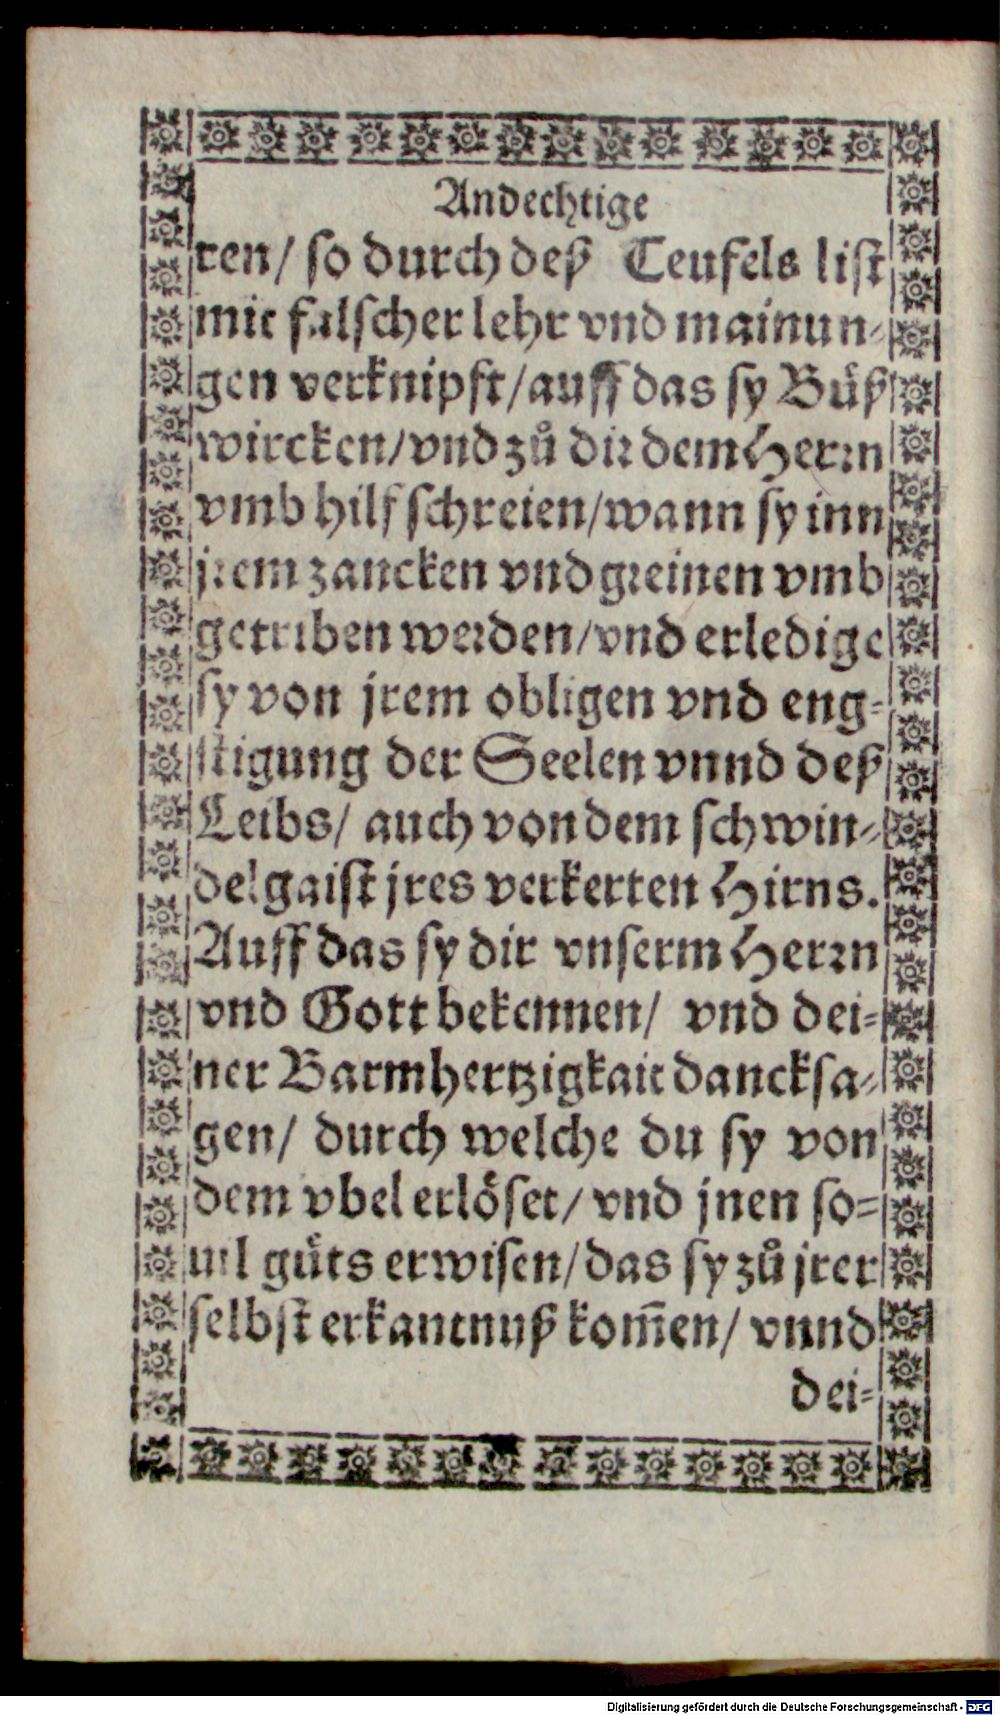 Andechtige
ren/ so durch deß Teufels list
mit falscher lehr vnd mainun-
gen verknipft/auff das sy Büß
wircken/vnd zů dir dem Herrn
vmb hilf schreien/wann sy inn
jrem zancken vnd greinen vmb
getriben werden/vnd erledige
sy von jrem obligen vnd eng-
stigung der Seelen vnnd deß
Leibs/ auch von dem schwin-
delgaist jres verkerten Hirns.
Auff das sy dir vnserm Herrn
vnd Gott bekennen/ vnd dei-
ner Barmhertzigkait dancksa-
gen/ durch welche du sy von
dem vbel erlöset/ vnd jnen so-
uil güts erwisen/das sy zů jrer
selbst erkantnuß kom̃en/ vnnd
dei-
Digitalisierung gefördert durch die Deutsche Forschungsgemeinschaft - DFG